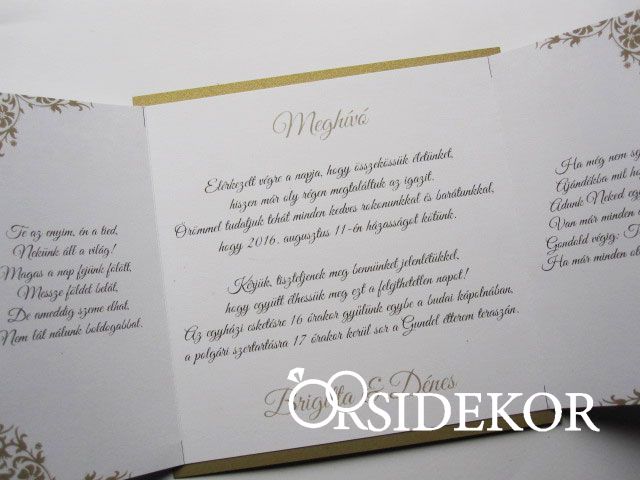 Te az enyim, én a tied,
Nekünk áll a világ!
Magas a nap fejünk fölött,
Messze földet belát,
De ameddig szeme elhat,
Nem lát nálunk boldogabbat.
Meghívó
Elérkezett végre a napja, hogy összekössük életünket,
hiszen már oly régen megtaláltuk az igazit.
Örömmel tudatjuk tehát minden kedves rokonunkkal és barátunkkal,
hogy 2016. augusztus 11-én házasságot kötünk.
Kérjük, tiszteljenek meg bennünket jelenlétükkel,
hogy együtt élhessük meg ezt a felejthetetlen napot!
Az egyházi esketésre 16 órakor gyűlünk egybe a budai kápolnában,
a polgári szertartásra 17 órakor kerül sor a Gundel étterem teraszán.
Brigitta & Dénes
Ha még nem
Ajándékba mit
Adunk Neked
Van már minden
Gondold végig:
Ha már minden
ORSIDEKOR